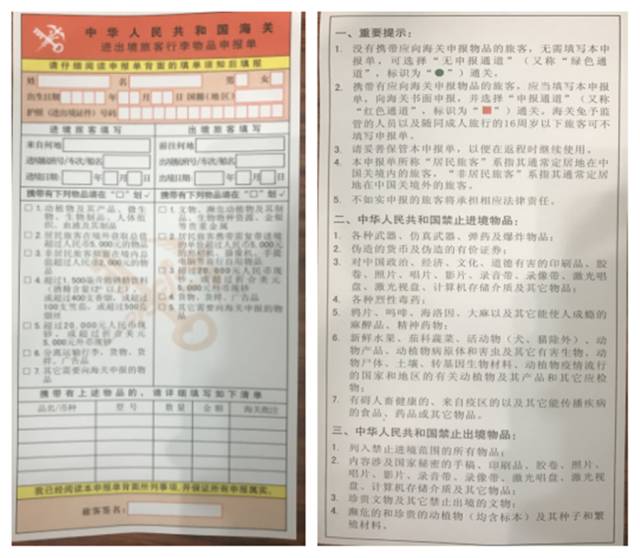 中华人民共和国海关
进出境旅客行李物品申报单
请仔细阅读申报单背面的填单须知后填报
姓 名 男 女
出生日期 年 月 日 国籍(地区)
护照(进出境证件)号码
进境旅客填写 出境旅客填写
来自何地 前往何地
进境航班号/车次/船名 出境航班号/车次/船名
进境日期: 年 月 日 出境日期: 年 月 日
携带有下列物品请在“□”划✓ 携带有下列物品请在“□”划✓
□ 1. 动植物及其产品、微生
物、生物制品、人体组
织、血液及其制品
□ 2. 居民旅客在境外获取总值
超过人民币5,000元的物品
□ 3. 非居民旅客拟留在境内总
值超过人民币2,000元的物
品
□ 4. 超过1,500毫升的酒精饮料
(酒精含量12°以上),
或超过400支香烟,或超过
100支雪茄,或超过500克
烟丝
□ 5. 超过20,000元人民币现
钞,或超过折合美元
5,000元外币现钞
□ 6. 分离运输行李,货物、货
样、广告品
□ 7. 其它需要向海关申报的物
品
□ 1. 文物、濒危动植物及其制
品、生物物种资源、金银
等贵重金属
□ 2. 居民旅客需复带进境
的单价超过人民币5,000元
的照相机、摄像机、手提
电脑等旅行自用物品
□ 3. 超过20,000元人民币现
钞,或超过折合美元
5,000元外币现钞
□ 4. 货物、货样、广告品
□ 5. 其它需要向海关申报的物
品
携带有上述物品的,请详细填写如下清单
品名/币种 型号 数量 金额 海关批注
我已经阅读本申报单背面所列事项,并保证所有申报属实。
旅客签名:
一、重要提示:
1. 没有携带应向海关申报物品的旅客,无需填写本申
报单,可选择“无申报通道”(又称“绿色通
道”,标识为“●”)通关。
2. 携带有应向海关申报物品的旅客,应当填写本申报
单,向海关书面申报,并选择“申报通道”(又称
“红色通道”,标识为“■”)通关。海关免予监
管的人员以及随同成人旅行的16周岁以下旅客可不
填写申报单。
3. 请妥善保管本申报单,以便在返程时继续使用。
4. 本申报单所称“居民旅客”系指其通常定居地在中
国关境内的旅客,“非居民旅客”系指其通常定居
地在中国关境外的旅客。
5. 不如实申报的旅客将承担相应法律责任。
二、中华人民共和国禁止进境物品:
1. 各种武器、仿真武器、弹药及爆炸物品;
2. 伪造的货币及伪造的有价证券;
3. 对中国政治、经济、文化、道德有害的印刷品、胶
卷、照片、唱片、影片、录音带、录像带、激光唱
盘、激光视盘、计算机存储介质及其它物品;
4. 各种烈性毒药;
5. 鸦片、吗啡、海洛因、大麻以及其它能使人成瘾的
麻醉品、精神药物;
6. 新鲜水果、茄科蔬菜、活动物(犬、猫除外)、动
物产品、动植物病原体和害虫及其它有害生物、动
物尸体、土壤、转基因生物材料、动植物疫情流行
的国家和地区的有关动植物及其产品和其它应检
物;
7. 有碍人畜健康的、来自疫区的以及其它能传播疾病
的食品、药品或其它物品。
三、中华人民共和国禁止出境物品:
1. 列入禁止进境范围的所有物品;
2. 内容涉及国家秘密的手稿、印刷品、胶卷、照片、
唱片、影片、录音带、录像带、激光唱盘、激光视
盘、计算机存储介质及其它物品;
3. 珍贵文物及其它禁止出境的文物;
4. 濒危的和珍贵的动植物(均含标本)及其种子和繁
殖材料。